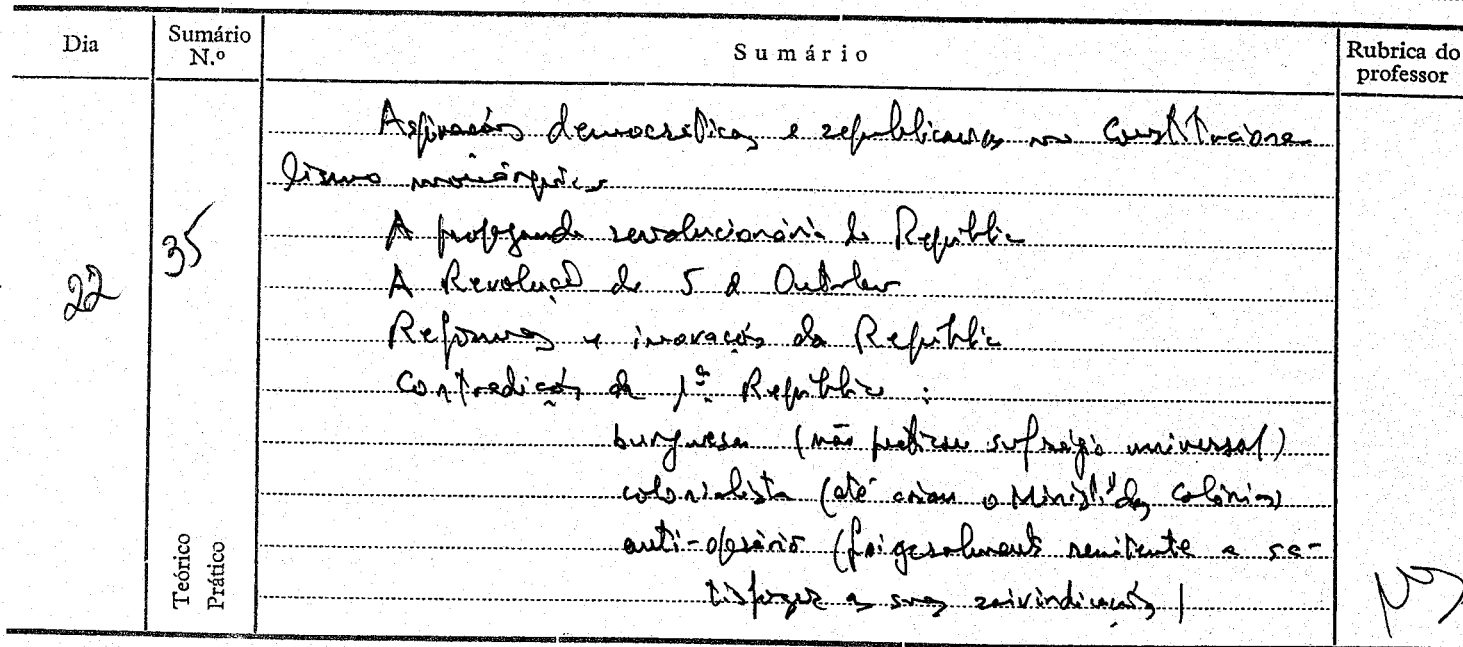 Dia
Sumário N.º
Sumário
Rubrica do professor
22
35
Teórico
Prático
Aspirações democráticas e republicanas no Constituciona-
lismo monárquico
A propaganda revolucionária da República
A Revolução de 5 de Outubro
Reformas e inovações da República
Contradições da 1ª República :
burguesa (não praticou sufrágio universal)
colonialista (até criou o Minist. das Colónias)
anti-operária (foi geralmente renitente a sa-
tisfazer as suas reivindicações)